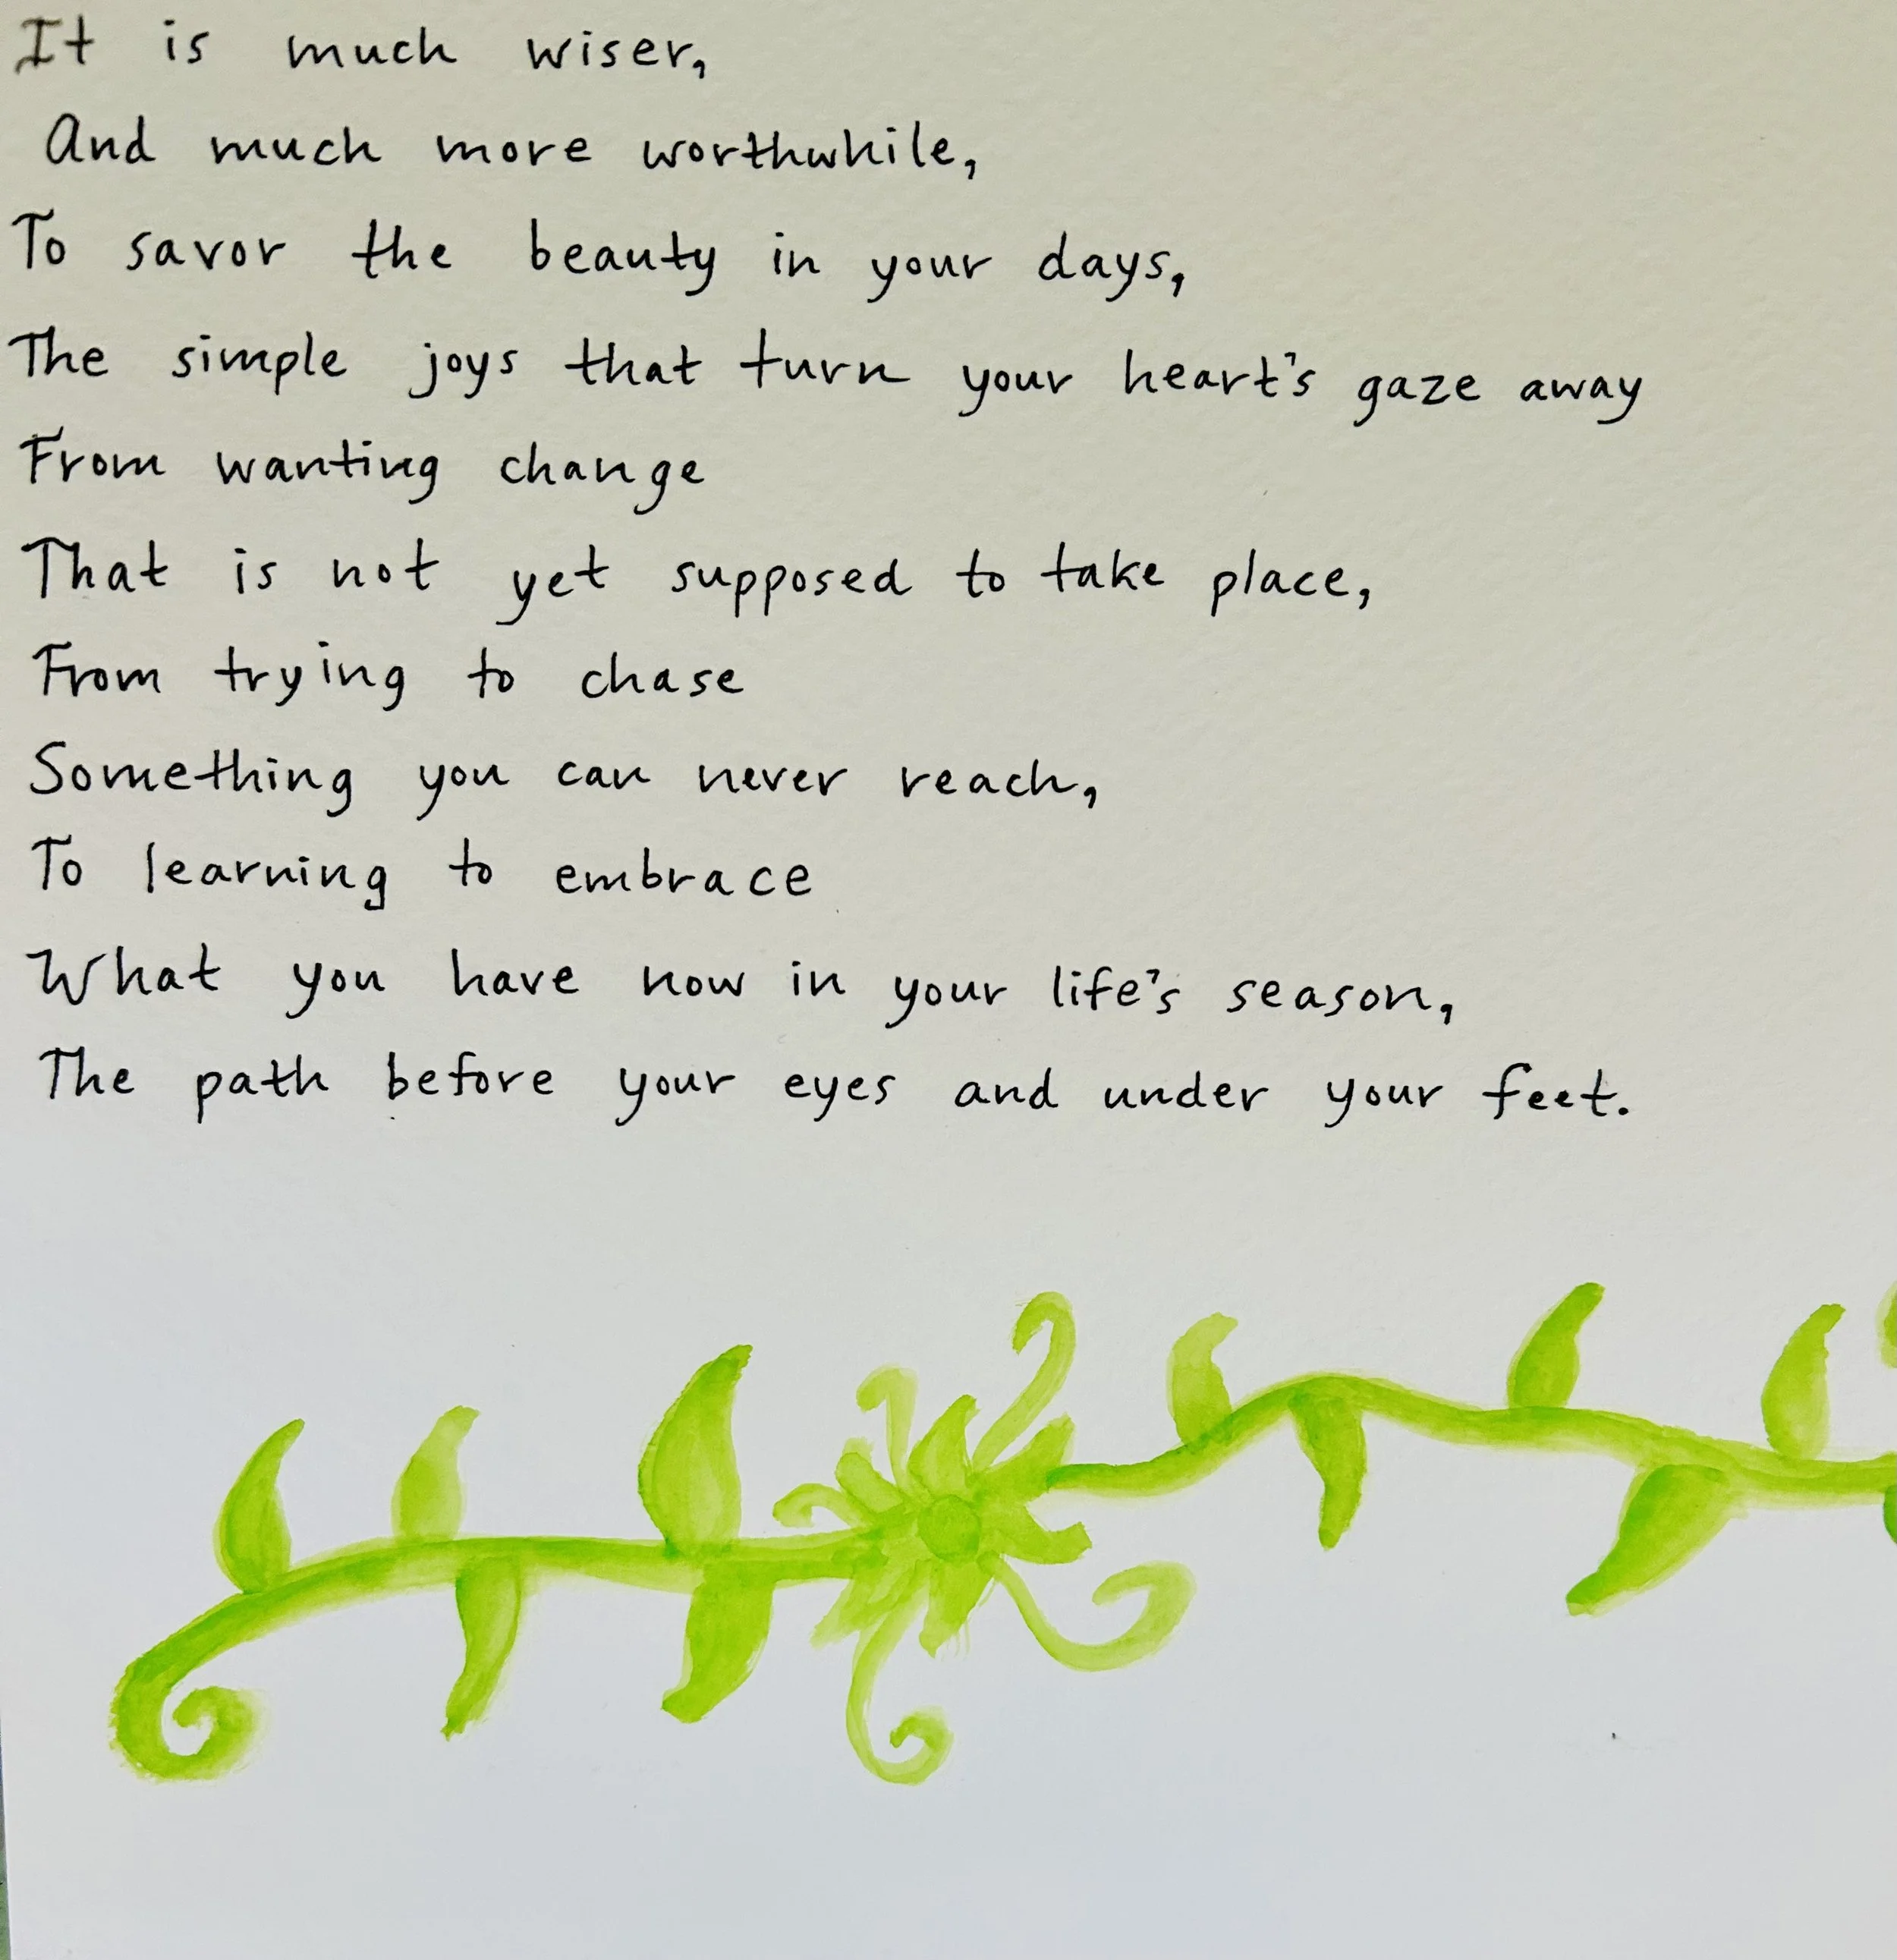 It is much wiser,
And much more worthwhile,
To savor the beauty in your days,
The simple joys that turn your heart's gaze away
From wanting change
That is not yet supposed to take place,
From trying to chase
Something you can never reach,
To learning to embrace
What you have now in your life's season,
The path before your eyes and under your feet.